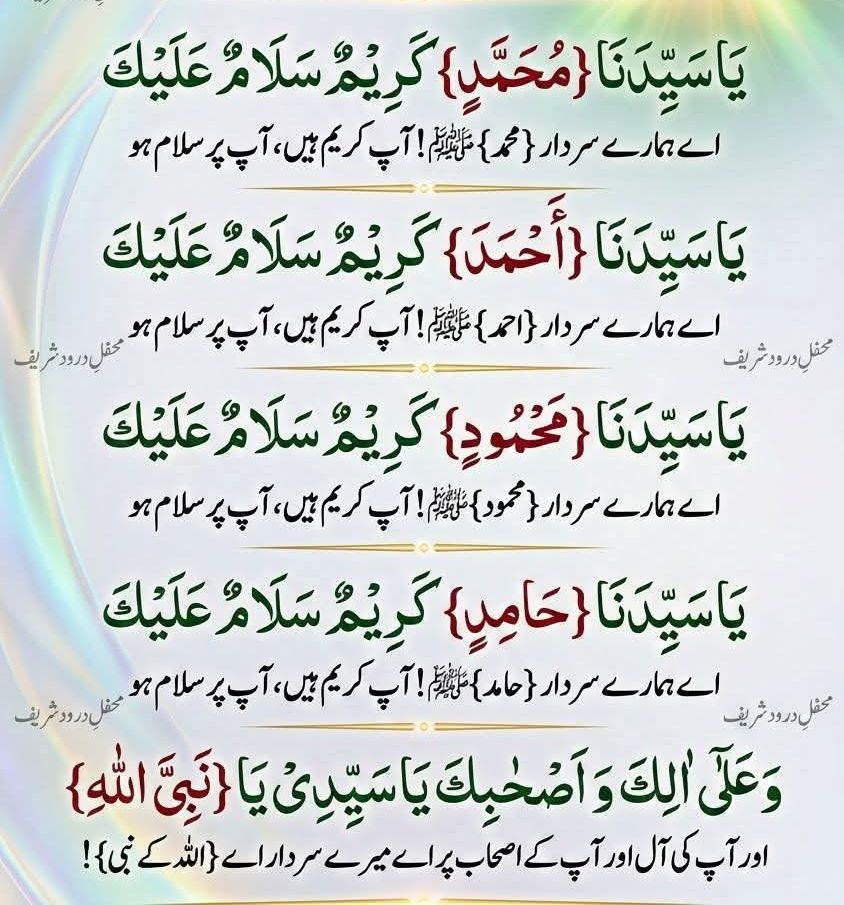 يَا سَيِّدَنَا {مُحَمَّدٍ} كَرِيْمٌ سَلَامٌ عَلَيْكَ
اے ہمارے سردار {محمد} ﷺ! آپ کریم ہیں، آپ پر سلام ہو
يَا سَيِّدَنَا {أَحْمَدَ} كَرِيْمٌ سَلَامٌ عَلَيْكَ
اے ہمارے سردار {احمد} ﷺ! آپ کریم ہیں، آپ پر سلام ہو
محفلِ درود شریف
محفلِ درود شریف
يَا سَيِّدَنَا {مَحْمُودٍ} كَرِيْمٌ سَلَامٌ عَلَيْكَ
اے ہمارے سردار {محمود} ﷺ! آپ کریم ہیں، آپ پر سلام ہو
يَا سَيِّدَنَا {حَامِدٍ} كَرِيْمٌ سَلَامٌ عَلَيْكَ
اے ہمارے سردار {حامد} ﷺ! آپ کریم ہیں، آپ پر سلام ہو
محفلِ درود شریف
محفلِ درود شریف
وَعَلٰٓى اٰلِكَ وَ اَصْحٰبِكَ يَا سَيِّدِىْ يَا {نَبِىَّ اللهِ}
اور آپ کی آل اور آپ کے اصحاب پر اے میرے سردار اے {اللہ کے نبی}!